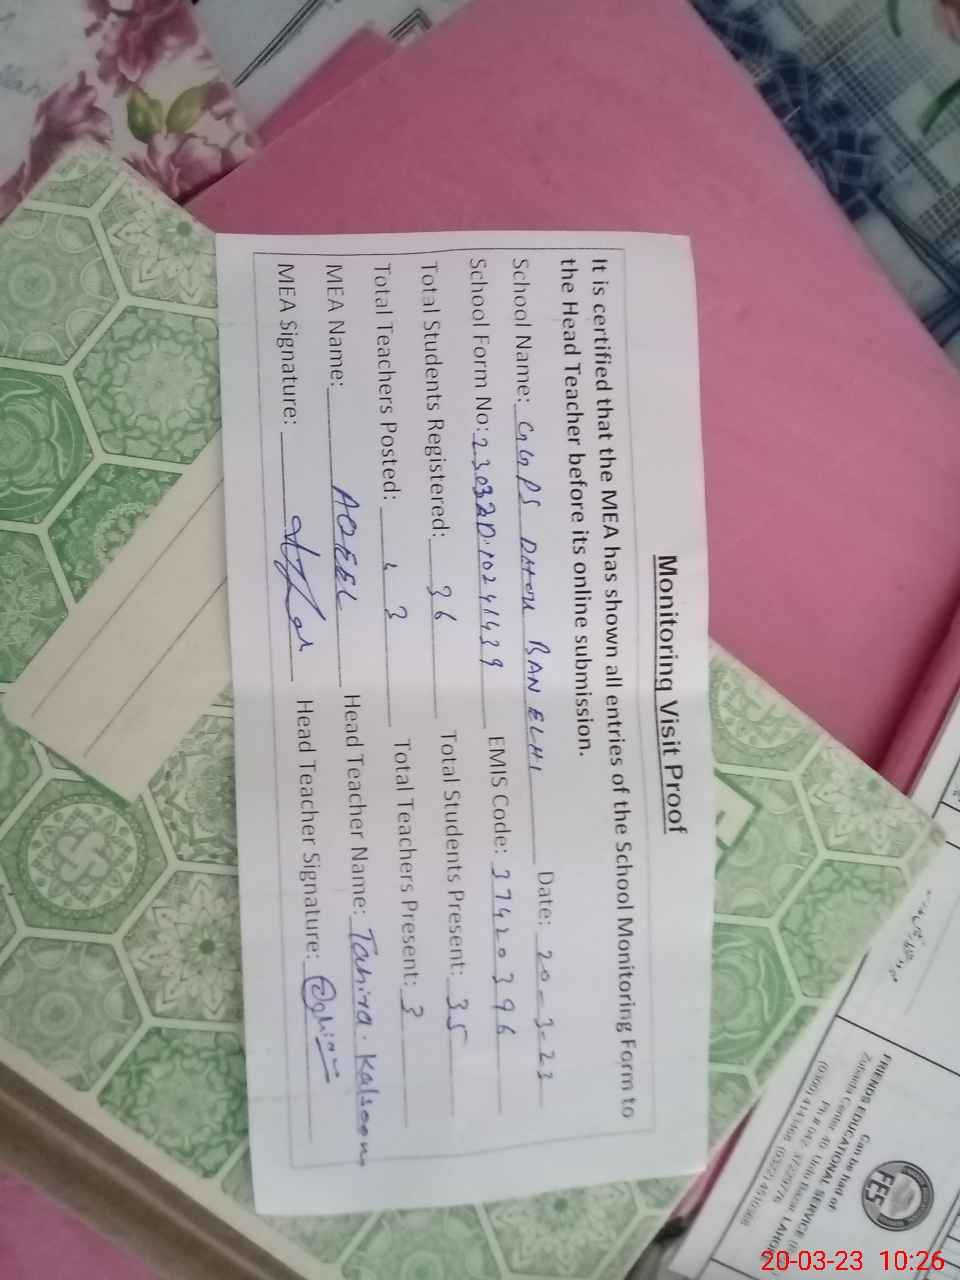 Monitoring Visit Proof
It is certified that the MEA has shown all entries of the School Monitoring Form to
the Head Teacher before its online submission.
School Name: GGPS DHOK BAN ELHI Date: 20-3-23
School Form No: 23032D1024439 EMIS Code: 37420396
Total Students Registered: 36 Total Students Present: 35
Total Teachers Posted: 3 Total Teachers Present: 3
MEA Name: AQEEL Head Teacher Name: Tahira Kalsoom
MEA Signature: Head Teacher Signature:
Can be had of
FRIENDS EDUCATIONAL SERVICE
Zubaida Center 40 Urdu Bazar LAHORE
FES
20-03-23 10:26